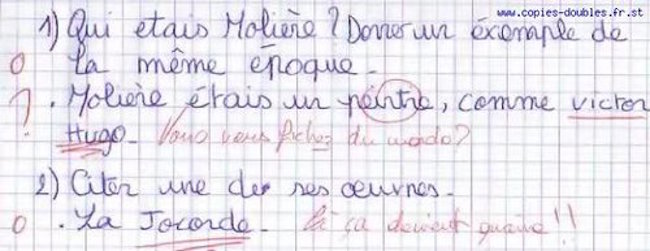 www.copies-doubles.fr.st
1) Qui etais Molière ? Donner un éxemple de
0 la même époque.
? . Molière étais un peintre, comme victor
Hugo. Vous vous fichez du monde ?
2) Citer une de ses œuvres.
0 . La Joconde. là ça devient grave !!